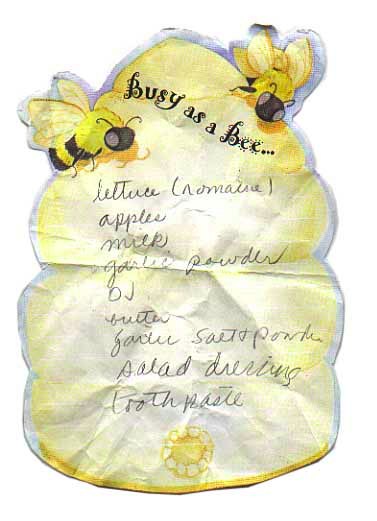 Busy as a Bee...
lettuce (romaine)
apples
milk
garlic powder
OJ
butter
garlic salt & powder
salad dressing
toothpaste